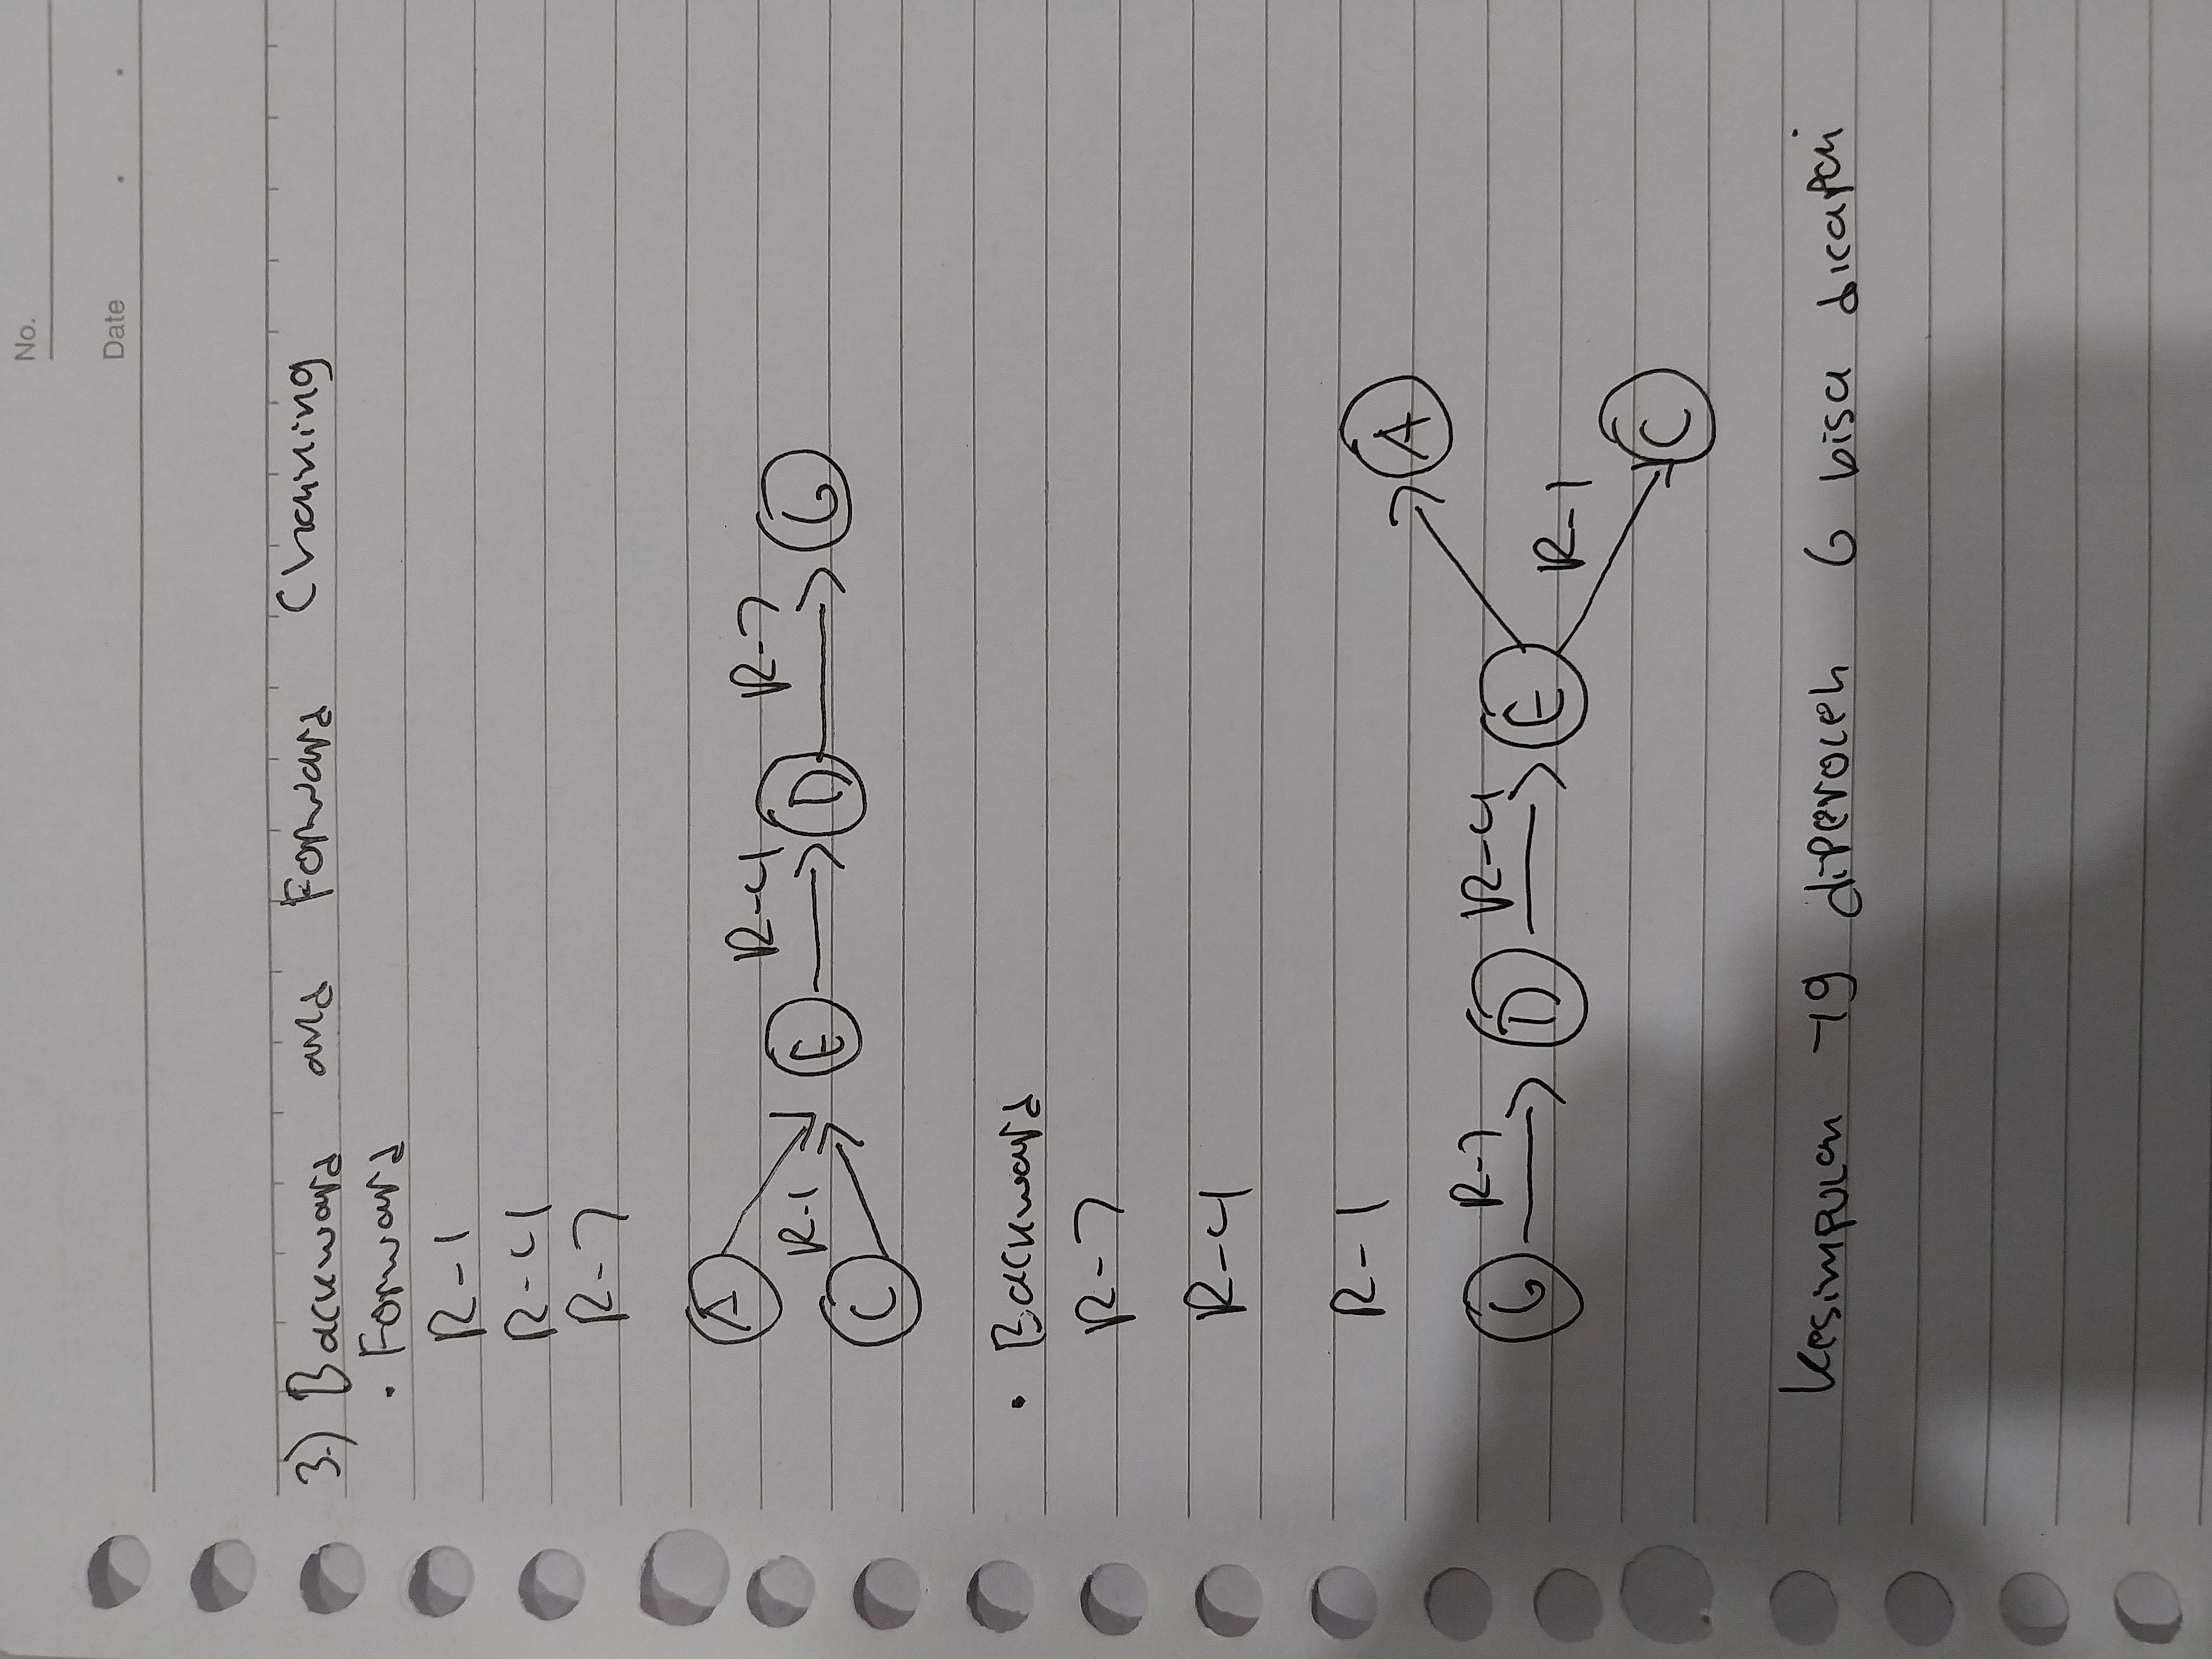 No.
Date
3.) Backward and Forward Chaining
• Forward
R-1
R-4
R-7
A
R-4 R-7
R-1 E D G
C
• Backward
R-7
R-4
R-1
A
R-7 R-4
G D E
R-1
C
Kesimpulan yg diperoleh G bisa dicapai